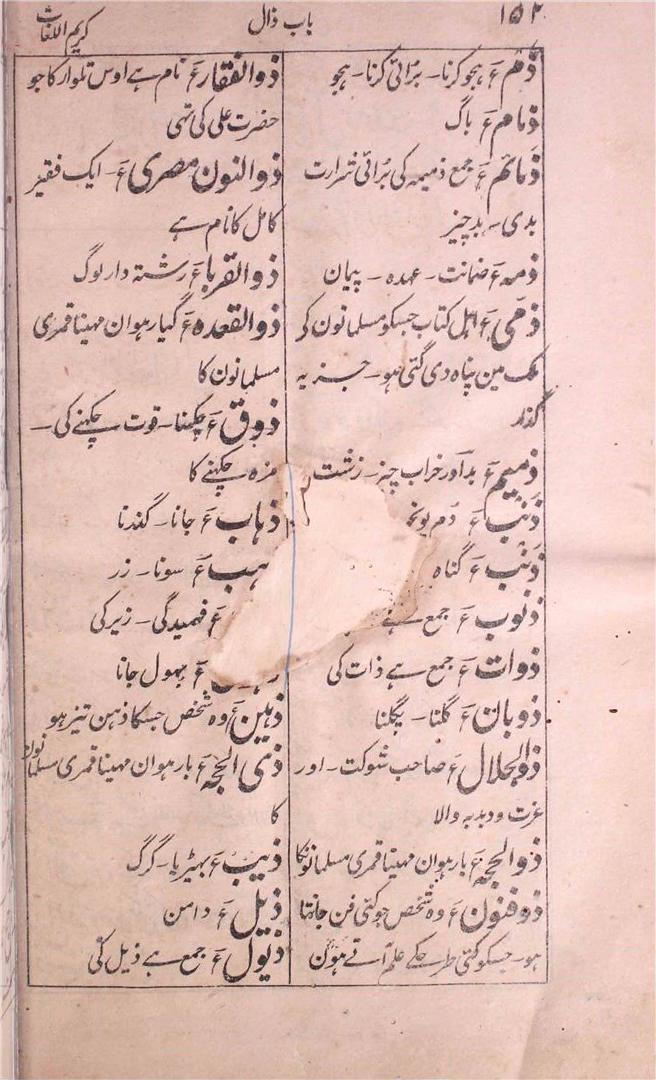 ۱۵۲ باب ذال کریم اللغات
ذم ع ہجو کرنا۔ برائی کرنا۔ ہجو
ذمام ع باگ
ذمائم ع جمع ذمیمہ کی برائی شرارت
بدی۔ بد چیز
ذمہ ع ضمانت۔ عہدہ۔ پیمان
ذمی ع اہل کتاب جسکو مسلمانون کے
ملک مین پناہ دی گئی ہو۔ جزیہ
گذار
ذمیم ع بد اور خراب چیز۔ زشت
ذنب ع دم پونچھ
ذنب ع گناہ
ذنوب ع جمع ہے
ذوات ع جمع ہے ذات کی
ذوبان ع گلنا۔ پگلنا
ذوالجلال ع صاحب شوکت۔ اور
عزت و دبدبہ والا
ذوالحجہ ع بارہوان مہینا قمری مسلمانونکا
ذوفنون ع وہ شخص جو کئی فن جانتا
ہو۔ جسکو کئی طرحکے علم آتے ہون
ذوالفقار ع نام ہے اوس تلوار کا جو
حضرت علی کی تہی
ذوالنون مصری ع۔ ایک فقیر
کامل کا نام ہے
ذوالقربا ع رشتہ دار لوگ
ذوالقعدہ ع گیارہوان مہینا قمری
مسلمانون کا
ذوق ع چکہنا۔ قوت چکہنے کی۔
مزہ چکہنے کا
ذہاب ع جانا۔ گذرنا
ہب ع سونا۔ زر
ع فہمیدگی۔ زیرکی
ع بہول جانا
ذہین ع وہ شخص جسکا ذہن تیز ہو
ذی الحجہ ع بارہوان مہینا قمری مسلمانون
کا
ذیب ع بہیڑیا۔ گرگ
ذیل ع دامن
ذیول ع جمع ہے ذیل کی